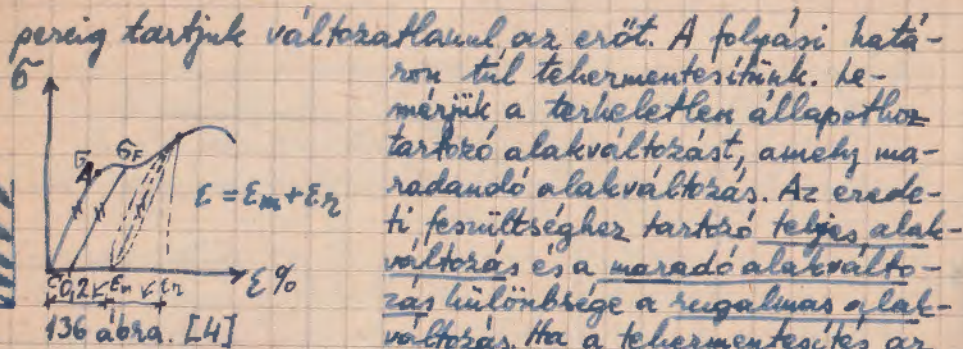 percig tartjuk változatlanul, az erőt. A folyási hatá-
ron túl tehermentesítünk. Le-
mérjük a terheletlen állapothoz
tartozó alakváltozást, amely ma-
radandó alakváltozás. Az erede-
ti feszültséghez tartozó teljes alak-
változás és a maradó alakválto-
zás különbsége a rugalmas alak-
változás. Ha a tehermentesítés az
σ
σF
ε = εm + εr
0,2
εm
εr
ε%
136 ábra. [4]